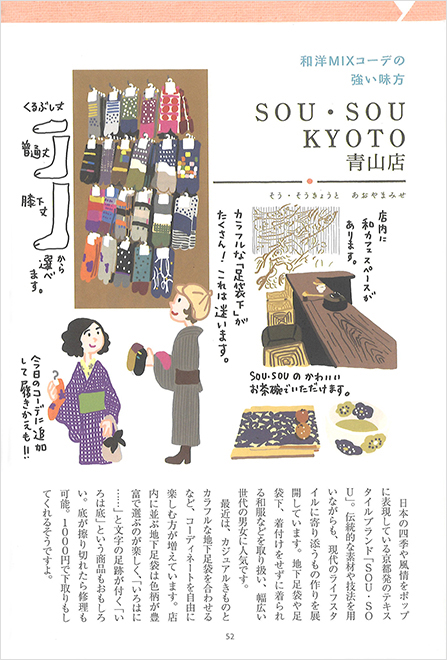 和洋MIXコーデの
強い味方
SOU・SOU
KYOTO
青山店
そう・そうきょうと　あおやまみせ
くるぶし丈
普通丈
膝下丈
から
選べ
ます。
カラフルな「足袋下」が
たくさん！これは迷います。
店内に
和カフェスペースが
あります。
SOU・SOUのかわいい
お茶碗でいただけます。
今日のコーデに追加
して履きかえも!!
日本の四季や風情をポップ
に表現している京都発のテキス
タイルブランド「SOU・SO
U」。伝統的な素材や技法を用
いながらも、現代のライフスタ
イルに寄り添うもの作りを展
開しています。地下足袋や足
袋下、着付けをせずに着られ
る和服などを取り扱い、幅広い
世代の男女に人気です。
最近は、カジュアルきものと
カラフルな地下足袋を合わせる
など、コーディネートを自由に
楽しむ方が増えています。店
内に並ぶ地下足袋は色柄が豊
富で選ぶのが楽しく、「いろはに
……」と文字の足跡が付く「い
ろは底」という商品もおもしろ
い。底が擦り切れたら修理も
可能。1000円で下取りもし
てくれるそうですよ。
52